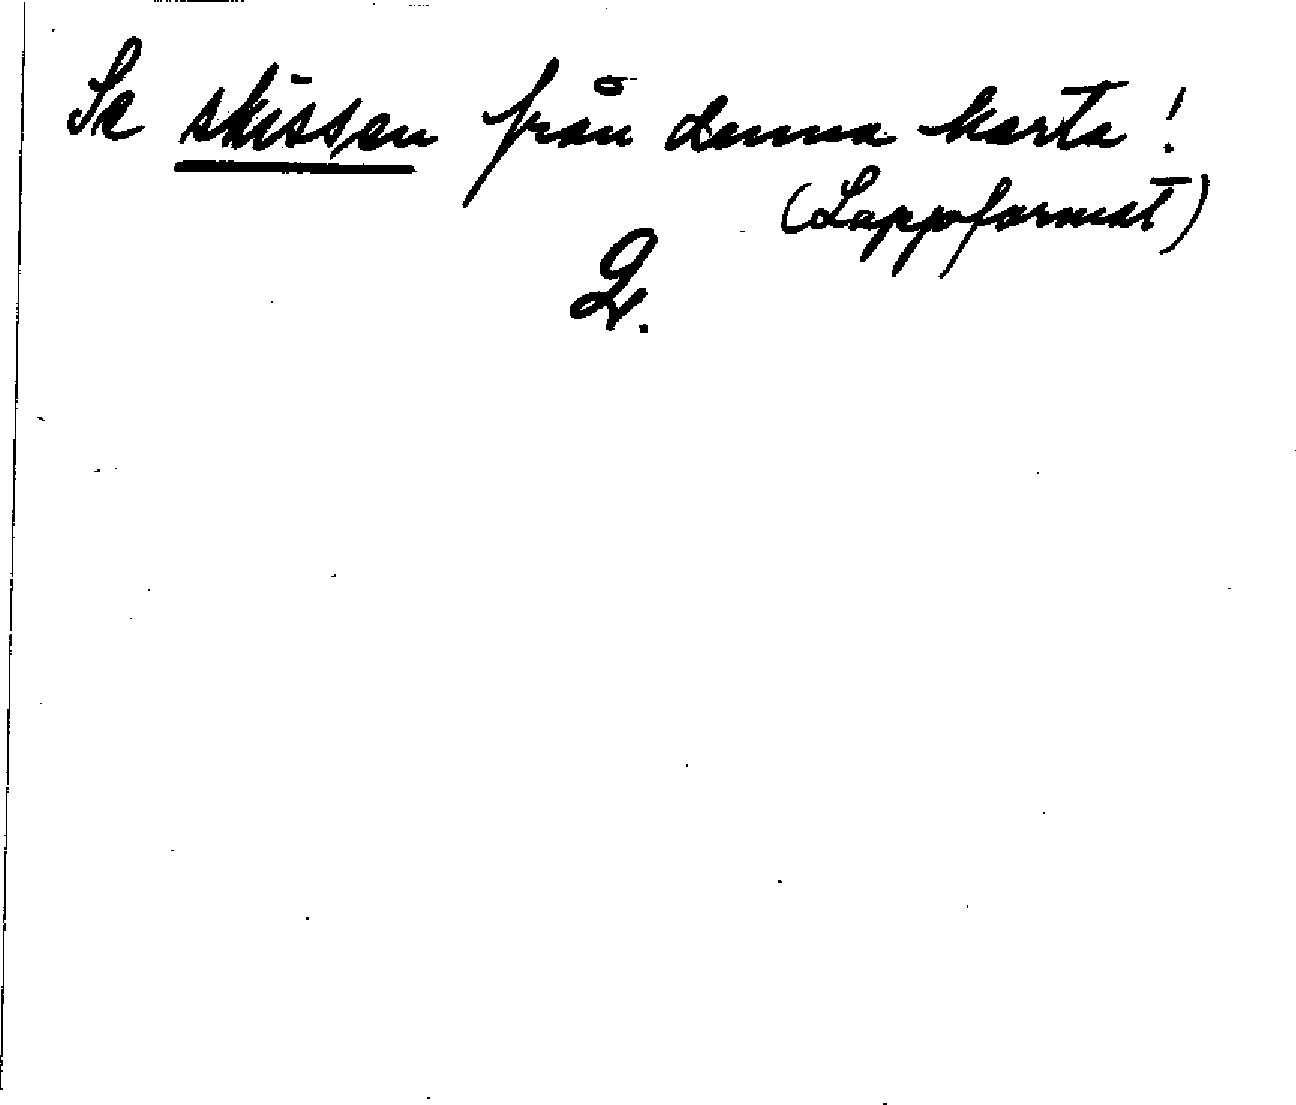 Se skissen från denna karta!
(Lappformat)